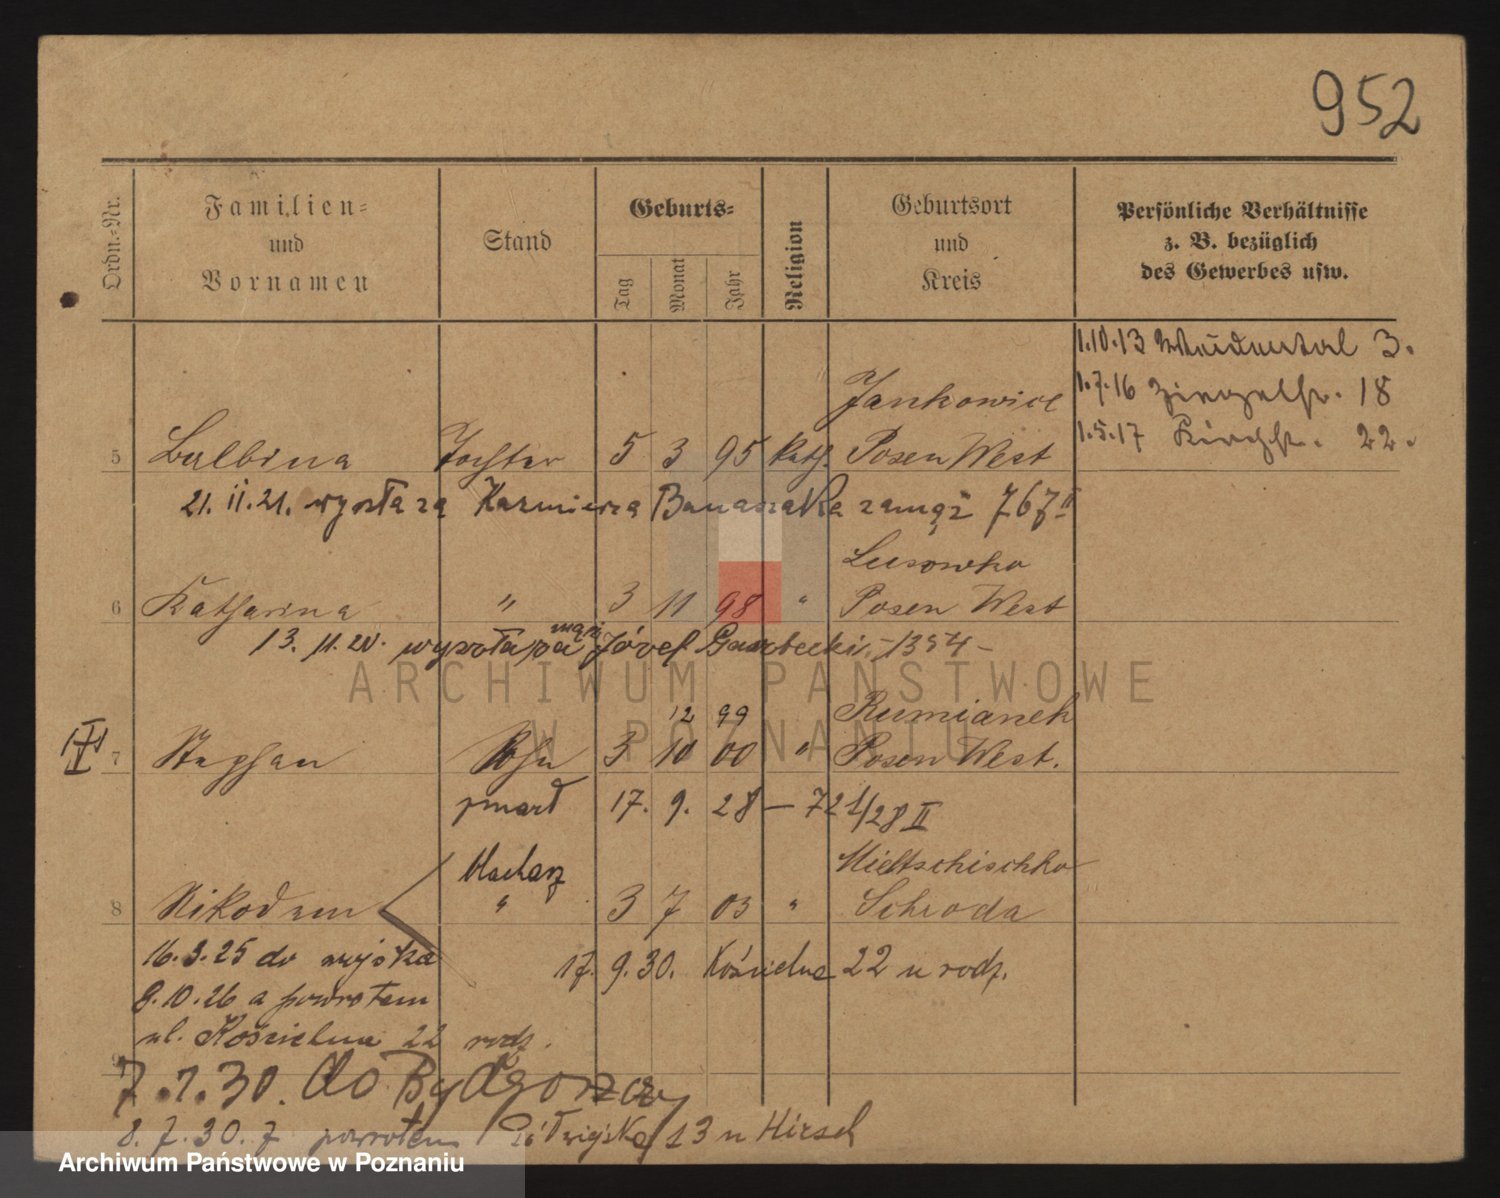 952
Ordn.-Nr.
Familien- und Vornamen
Stand
Geburts-
Tag Monat Jahr
Religion
Geburtsort und Kreis
Persönliche Verhältnisse z. B. bezüglich des Gewerbes usw.
1.10.13 3.
1.7.16 Ziegelstr. 18
1.5.17 Kirchstr. 22.
Jankowice
5 Balbina Tochter 5 3 95 kath. Posen West
21.11.21. wyszła za Kazmierza Banaszaka zamąż 767 II
Lusowko
6 Katharina " 3 11 98 " Posen West
mąż
13.11.20. wyszła za Józef Garbecki, 1354 –
12 99 Rumianek
7 Stephan Sohn 3 10 00 " Posen West.
zmarł 17. 9. 28 – 721/28 II
Mieltschischko
8 Nikodem " 3 7 03 " Schroda
16.3.25 do wojska 17. 9. 30. Kościelna 22 u rodz.
9.10.26 a powrotem
ul. Kościelna 22 rodz.
9
7.1.30. do Bydgoszczy
8. 7. 30. z powrotem 13 u Hirsch
ARCHIWUM PAŃSTWOWE
W POZNANIU
Archiwum Państwowe w Poznaniu